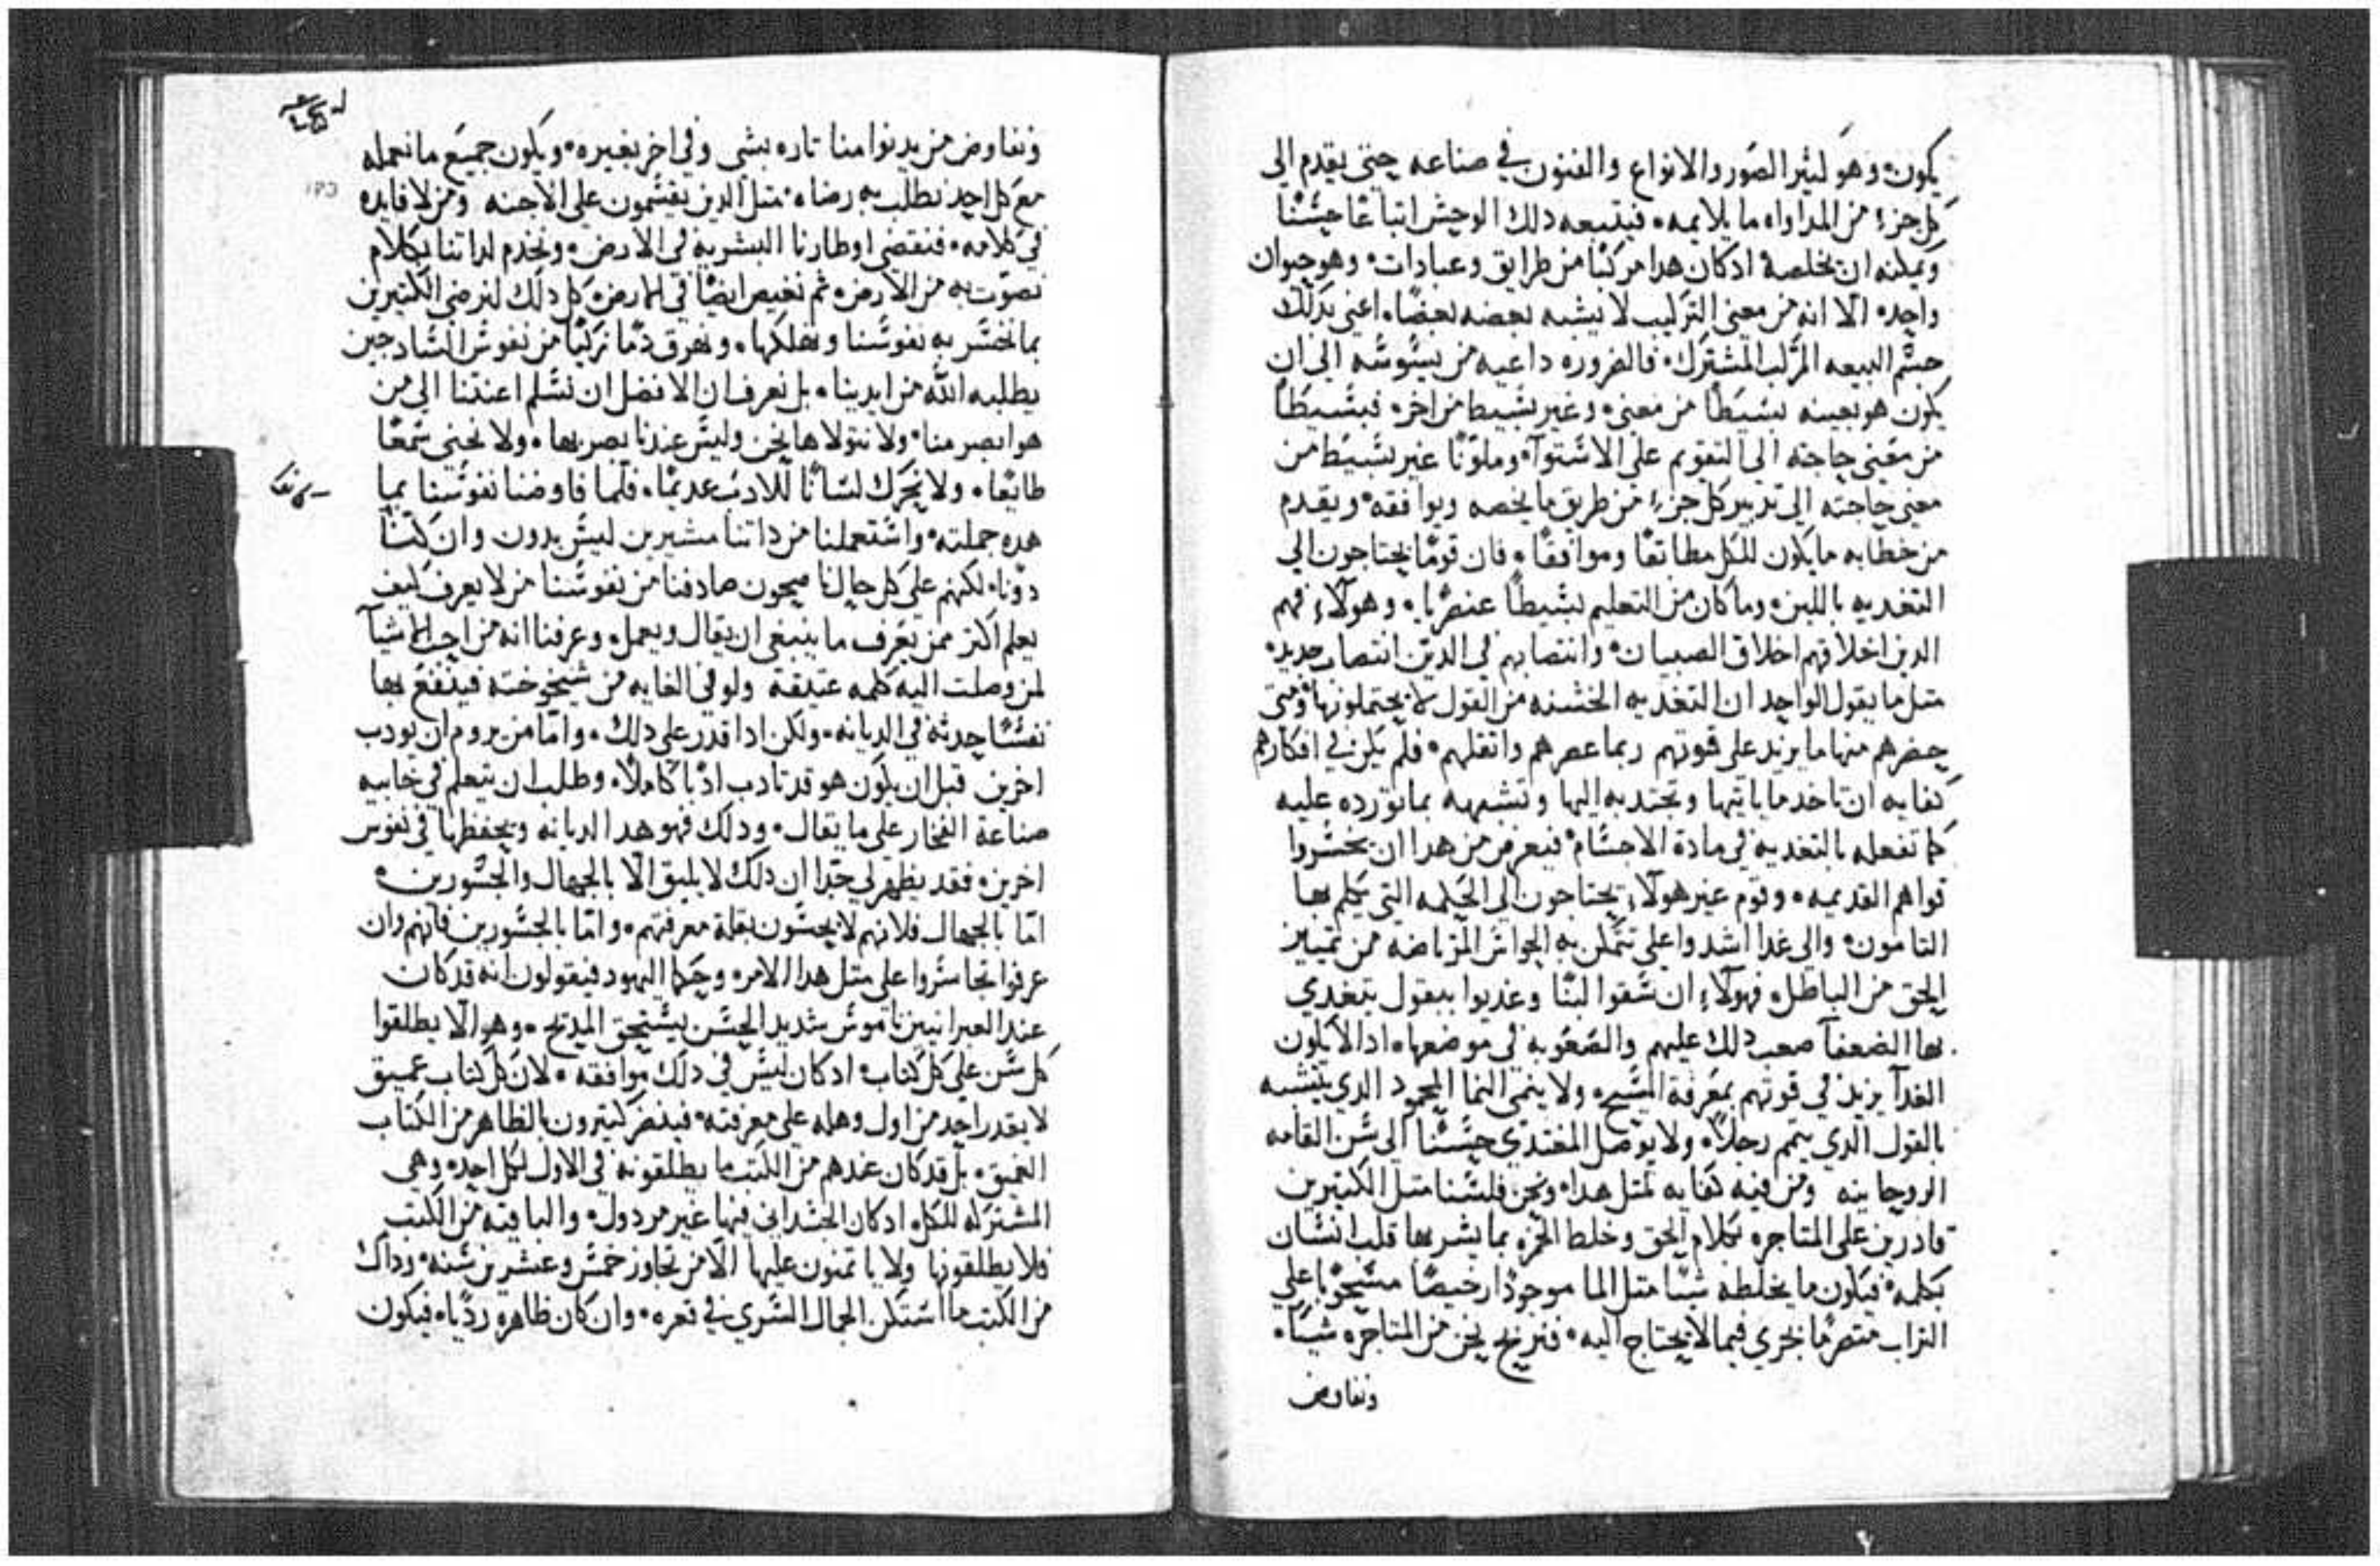 يكون وهو كثير الصور والانواع والفنون في صناعه حتى يقدم الى
كل جزء من المداواه ما يلايمه فيتبعه دلك الوحش اتباعا حسنا
ويمكنه ان يخلصه ادكان هدا مركبا من طرايق وعبادات وهو حيوان
واحد الا انه من معنى التركيب لا يشبه بعضه بعضا اعني بدلك
جسم البيعه المركب المشترك فالضروره داعيه من يسوسه الى ان
يكون هو بعينه بسيطا من معنى وغير بسيط من اخر فبسيطا
من معنى حاجته الى التقويم على الاستوآ وملونا غير بسيط من
معنى حاجته الى تدبير كل جزء من طريق ما يخصه ويوافقه ويقدم
من خطابه ما يكون للكل مطابقا وموافقا فان قوما يحتاجون الى
التغديه باللبن وما كان من التعليم بسيطا عنصريا وهولاء فهم
الدين اخلاقهم اخلاق الصبيان وانتصابهم في الدين انتصاب جديد
متل ما يقول الواحد ان التغديه الخشنه من القول لا يحتملونها ومتى
حضرهم منها ما يزيد على قوتهم ربما عصرهم واتقلهم فلم يكن في افكارهم
كفايه ان تاخد ما ياتيها وتجتدبه اليها وتشبهه بما تورده عليه
كما تفعله بالتغديه في مادة الاجسام فيعرض من هدا ان يخسروا
قواهم القديمه وقوم غير هولاء يحتاجون الى الحكمه التي يتكلم بها
التامون والى غدا اشد واعلى تتمكن به الحواس المرتاضه من تمييز
الحق من الباطل فهولاء ان سقوا لبنا وغديوا ببقول يتغدي
بها الضعفا صعب دلك عليهم والصعوبه في موضعها اد لا يكون
الغدآ يزيد في قوتهم بمعرفة المسيح ولا ينمي النما المحمود الدي
بالقول الدي يتمم رجلا ولا يوصل المغتدي حسنا الى سن القامه
الروحانيه ومن فيه كفايه لمتل هدا ونحن فلسنا متل الكتيرين
قادرين على المتاجره بكلام الحق وخلط الخمره بما يشربها قلب انسان
بكلمه فيكون ما يخلطه شيا متل الما موجودا رخيصا مسحوبا على
التراب متصرما يجري فيما لا يحتاج اليه فنربح نحن من المتاجره شيا
ونفاوض
ونفاوض من يدنوا منا تاره بشي وفي اخر بغيره ويكون جميع ما نعمله
مع كل احد نطلب به رضاه متل الدين يقسمون على الاجنه ومن لا فايده
في كلامه فنقضي اوطارنا البشريه في الارض ونخدم لداتنا بكلام
نصوت به من الارض ثم نغيص ايضا في الارض كل دلك لنرضي الكتيرين
بما نخسر به نفوسنا ونهلكها ونهرق دما زكيا من نفوس السادجين
يطلبه الله من ايدينا بل نعرف ان الافضل ان نسلم اعنتنا الى من
هو ابصر منا ولا نتولاها نحن وليس عندنا بصر بها ولا نحني سمعا
طايعا ولا نحرك لسانا للادب عديما فلما فاوضنا نفوسنا بما
هده جملته واستعملنا من داتنا مشيرين ليس بدون وان كنا
دونا لكنهم على كل حال ناصحون صادفنا من نفوسنا من لا يعرف كيف
يعلم اكتر ممن يعرف ما ينبغي ان يقال ويعمل وعرفنا انه من احب الاشيآ
لمن وصلت اليه كلمه عتيقه ولو في الغايه من شيخوخته فينفع بها
نفسا حدثه في الديانه ولكن ادا قدر على دلك واما من يروم ان يودب
اخرين قبل ان يكون هو قد تادب ادبا كاملا وطلب ان يتعلم في خابيه
صناعة الفخار على ما يقال ودلك فهو هدا الديانه ويحفظها في نفوس
اخرين فقد يظهر لي جدا ان دلك لا يليق الا بالجهال والجسورين
اما بالجهال فلانهم لا يحسون بقلة معرفتهم واما بالجسورين فانهم وان
عرفوا تجاسروا على متل هدا الامر وحكما اليهود فيقولون انه قد كان
عند العبرانيين ناموس شديد الحسن يستحق المديح وهو الا يطلقوا
كل سن على كل كتاب ادكان ليس في دلك موافقه لان كل كتاب عميق
لا يقدر احد من اول وهله على معرفته فينضر كتيرون بالظاهر من الكتاب
العميق بل قد كان عندهم من الكتب ما يطلقونه في الاول لكل احد وهي
المشتركه للكل ادكان الجسداني فيها غير مردول والباقيه من الكتب
فلا يطلقونها ولا ياتمنون عليها الا من تجاوز خمس وعشرين سنه ودآك
من الكتب ما استكن الجمال السري في قعره وان كان ظاهره رديا فيكون